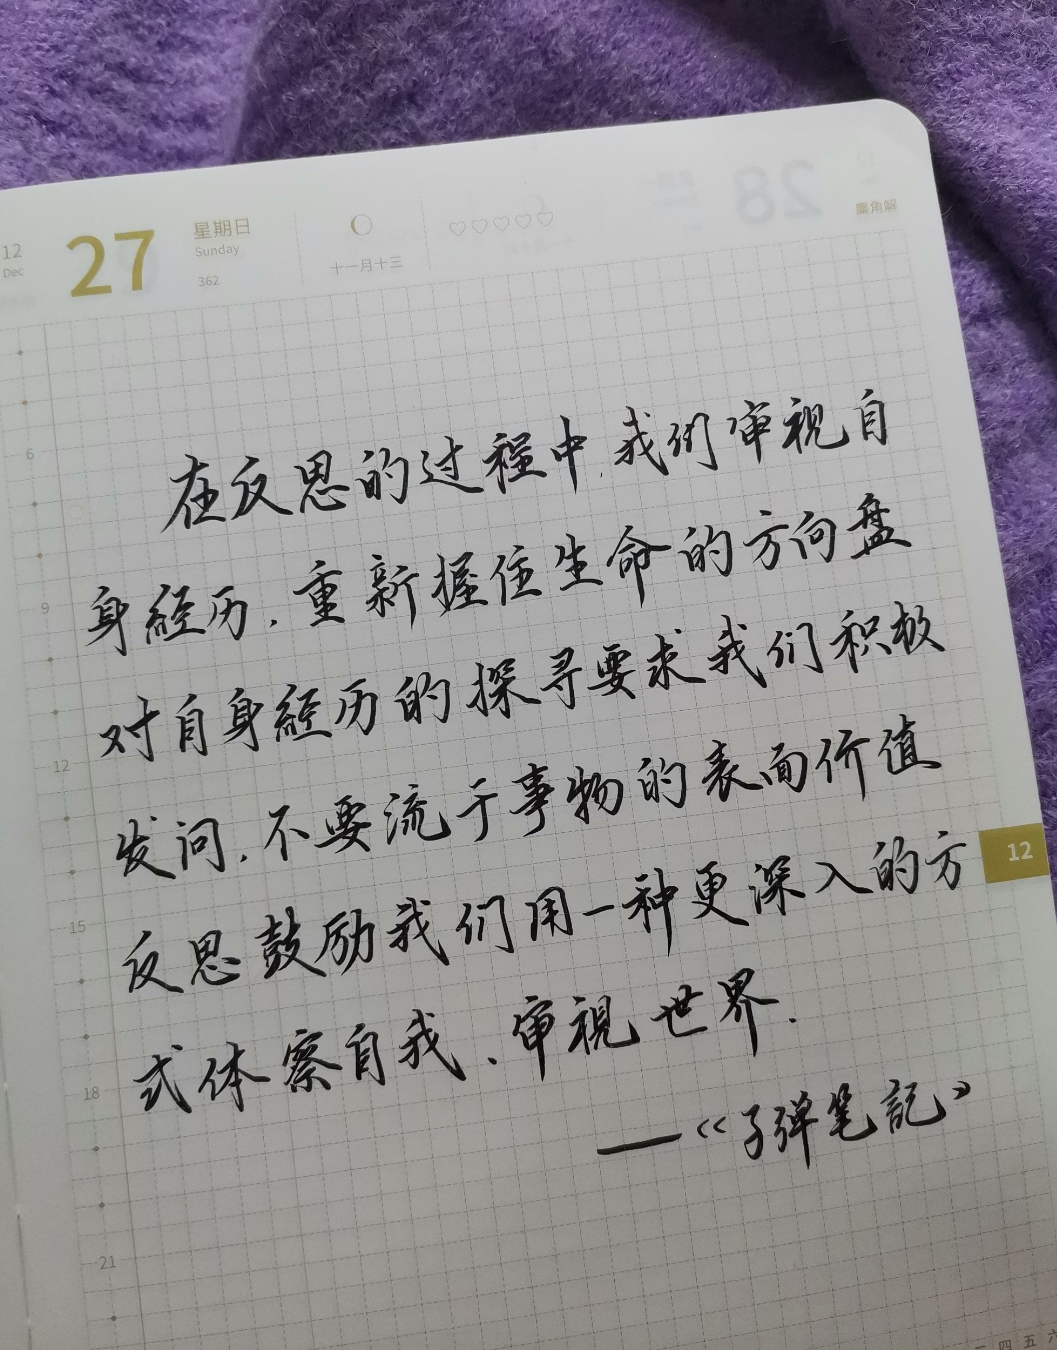 12
Dec
27
星期日
Sunday
362
十一月十三
28
麋角解
6
9
12
15
18
21
12
在反思的过程中,我们审视自
身經历,重新握住生命的方向盘
对自身經历的探寻要求我们积极
发问,不要流于事物的表面价值
反思鼓励我们用一种更深入的方
式体察自我、审視世界.
——《子弹笔記》
四 五 六